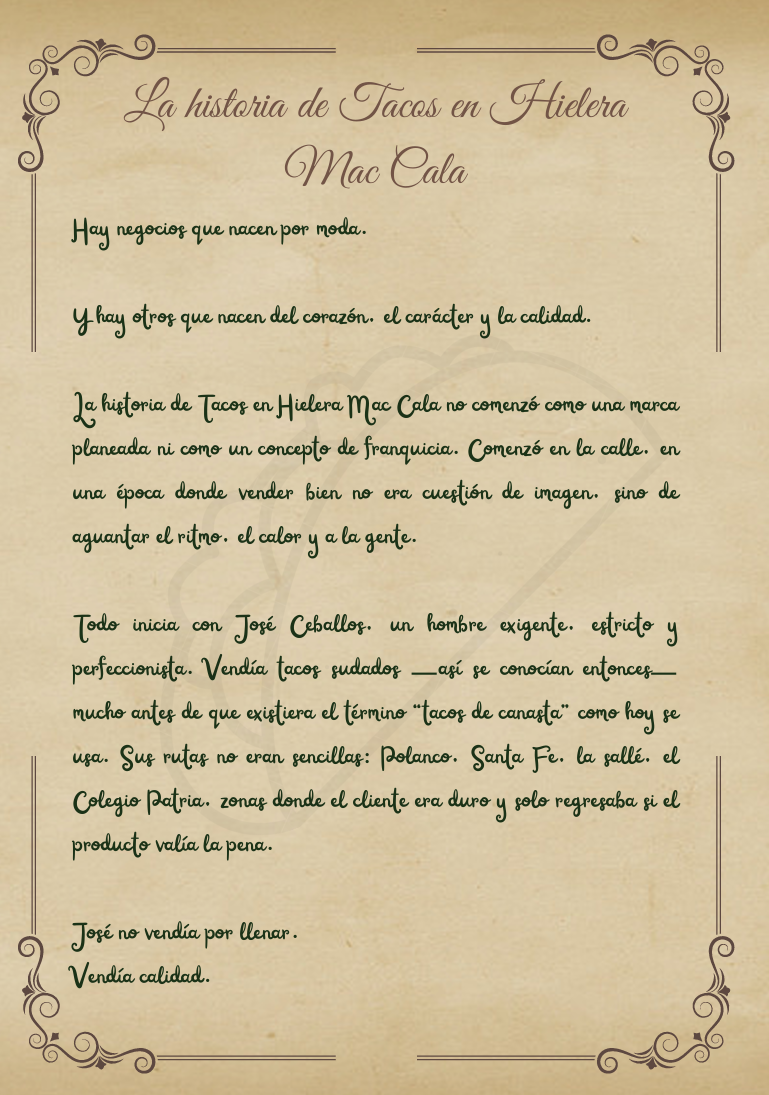 La historia de Tacos en Hielera
Mac Cala
Hay negocios que nacen por moda.
Y hay otros que nacen del corazón, el carácter y la calidad.
La historia de Tacos en Hielera Mac Cala no comenzó como una marca
planeada ni como un concepto de franquicia. Comenzó en la calle, en
una época donde vender bien no era cuestión de imagen, sino de
aguantar el ritmo, el calor y a la gente.
Todo inicia con José Ceballos, un hombre exigente, estricto y
perfeccionista. Vendía tacos sudados —así se conocían entonces—
mucho antes de que existiera el término “tacos de canasta” como hoy se
usa. Sus rutas no eran sencillas: Polanco, Santa Fe, la sallé, el
Colegio Patria, zonas donde el cliente era duro y solo regresaba si el
producto valía la pena.
José no vendía por llenar.
Vendía calidad.